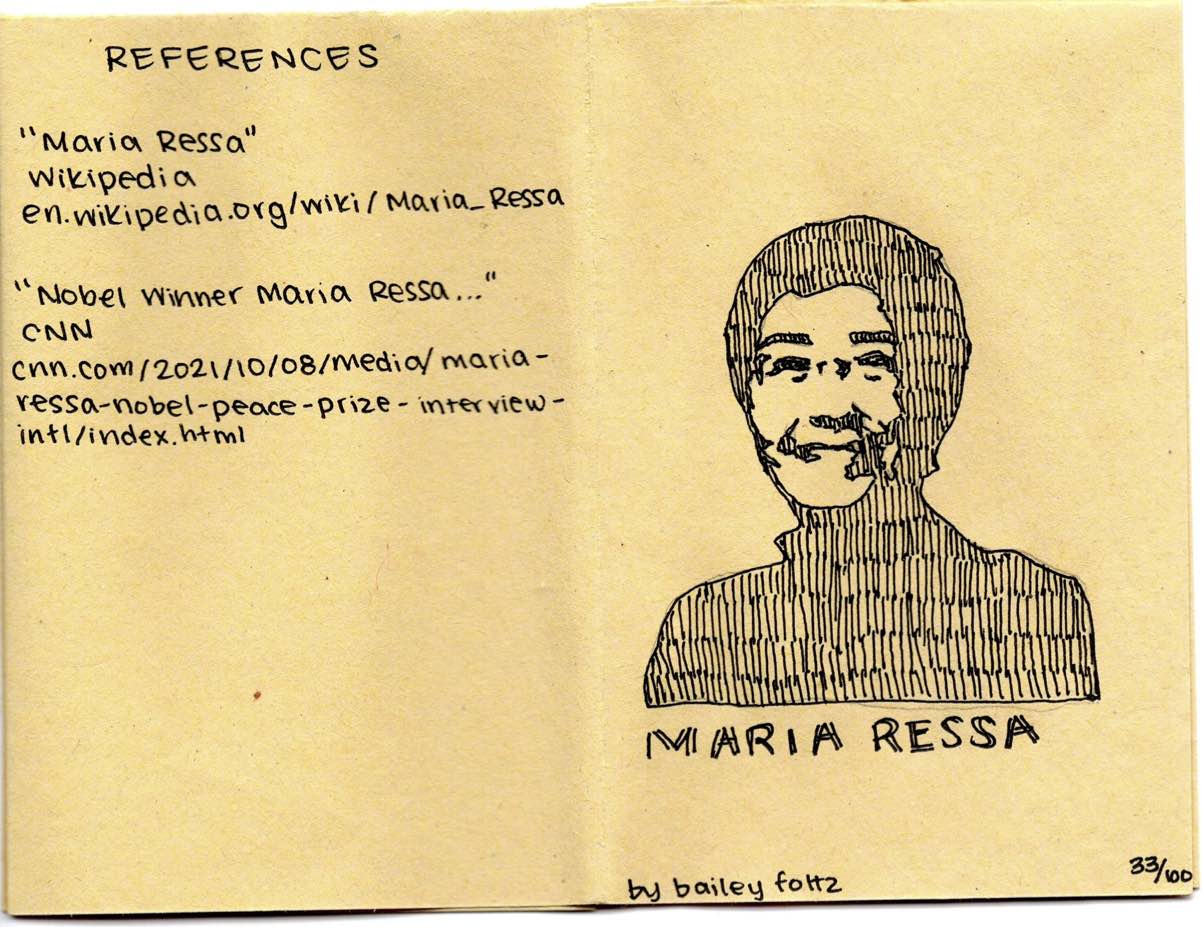 REFERENCES
"Maria Ressa"
Wikipedia
en.wikipedia.org/wiki/Maria_Ressa
"Nobel Winner Maria Ressa..."
CNN
cnn.com/2021/10/08/media/maria-
ressa-nobel-peace-prize-interview-
intl/index.html
MARIA RESSA
by bailey foltz
33/100